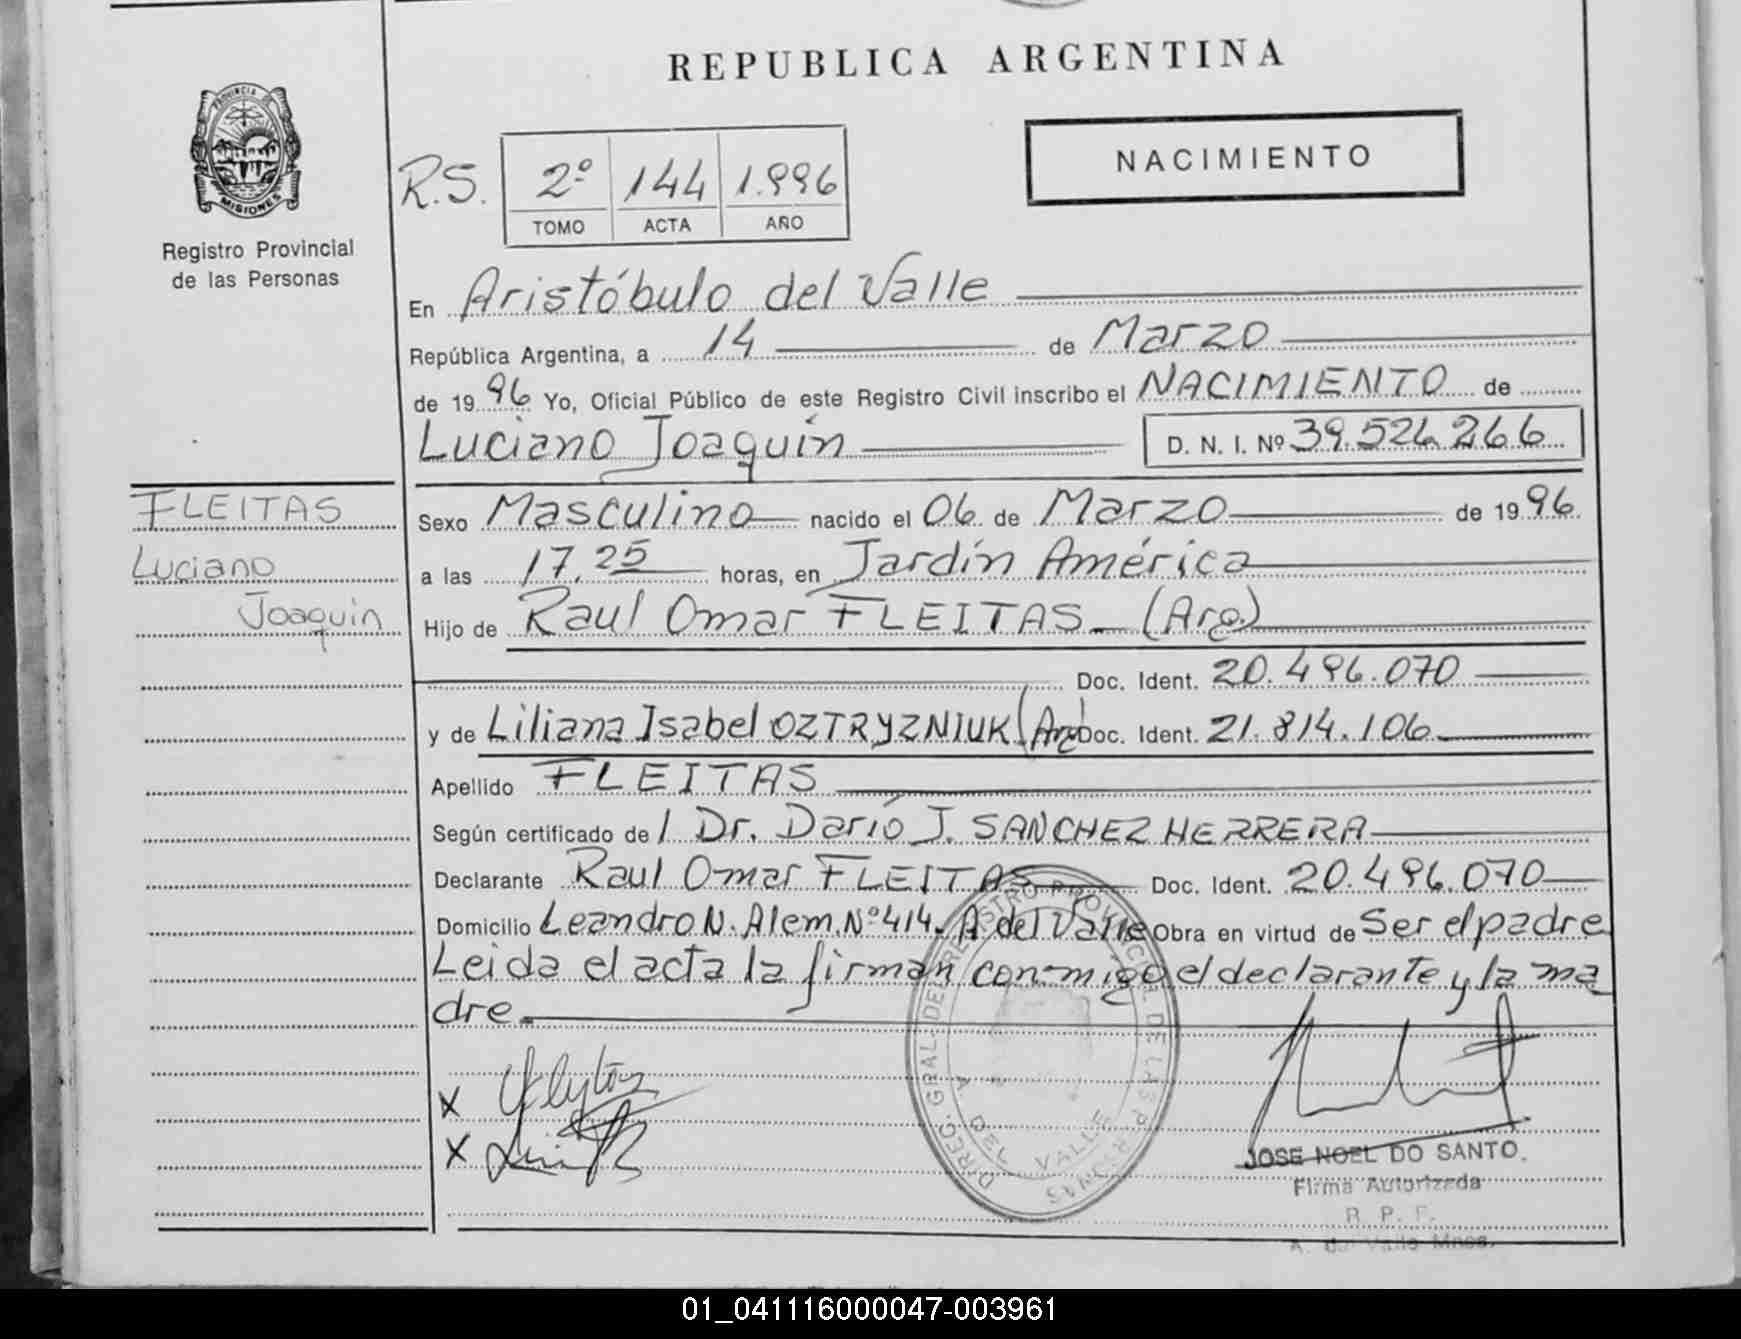 REPUBLICA ARGENTINA
PROVINCIA DE
MISIONES
Registro Provincial
de las Personas
NACIMIENTO
R.S. 2º 144 1.996
TOMO ACTA AÑO
En Aristóbulo del Valle
República Argentina, a 14 de Marzo
de 1996 Yo, Oficial Público de este Registro Civil inscribo el NACIMIENTO de
Luciano Joaquín D. N. I. Nº 39.526.266
FLEITAS
Luciano
Joaquin
Sexo Masculino nacido el 06 de Marzo de 1996
a las 17.25 horas, en Jardín América
Hijo de Raul Omar FLEITAS (Arg.)
Doc. Ident. 20.496.070
y de Liliana Isabel OZTRYZNIUK (Arg) Doc. Ident. 21.814.106
Apellido FLEITAS
Según certificado de l Dr. Darío J. SANCHEZ HERRERA
Declarante Raul Omar FLEITAS Doc. Ident. 20.496.070
Domicilio Leandro N. Alem. Nº 414. A. del Valle Obra en virtud de Ser el padre
Leida el acta la firman conmigo el declarante y la ma
dre.
X
X
DIREC. GRAL. DEL REGISTRO PROVINCIAL DE LAS P.
A. DEL VALLE
MISIONES
JOSE NOEL DO SANTO.
Firma Autorizada
R. P. P.
A. del Valle Mnes.
01_041116000047-003961